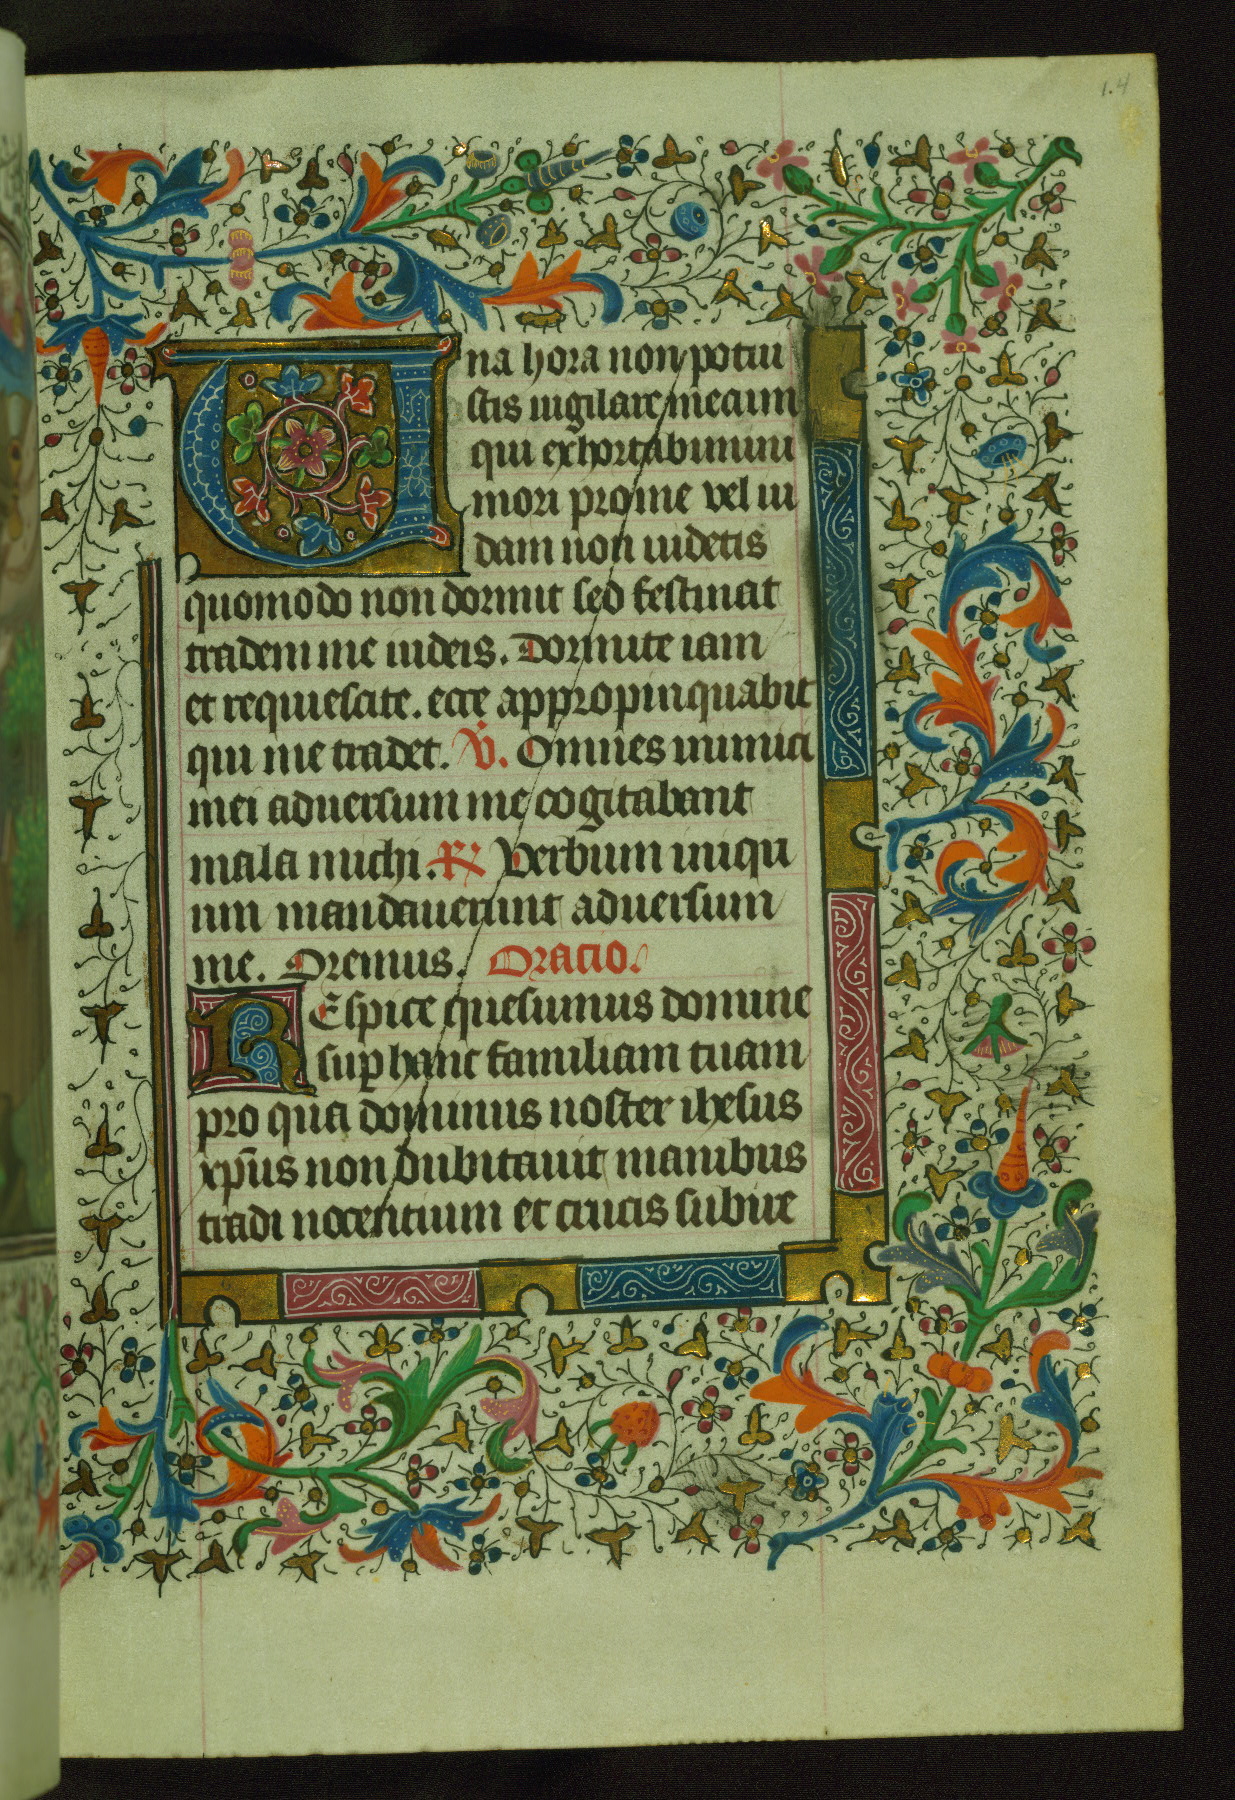 1.4
Una hora non potui
stis uigilare mecum
qui exhortabimini
mori pro me vel iu
dam non uidetis
quomodo non dormit sed festinat
tradem me iudeis. Dormite iam
et requiescite. ecce appropinquabit
qui me tradet. V̇. Omnes inimici
mei aduersum me cogitabant
mala michi. ℟ Verbum iniqu
um mandauerunt aduersum
me. Oremus. Oracio.
REspice quesumus domine
sup hanc familiam tuam
pro qua dominus noster ihesus
xp̄us non dubitauit manibus
tradi nocentium et crucis subire